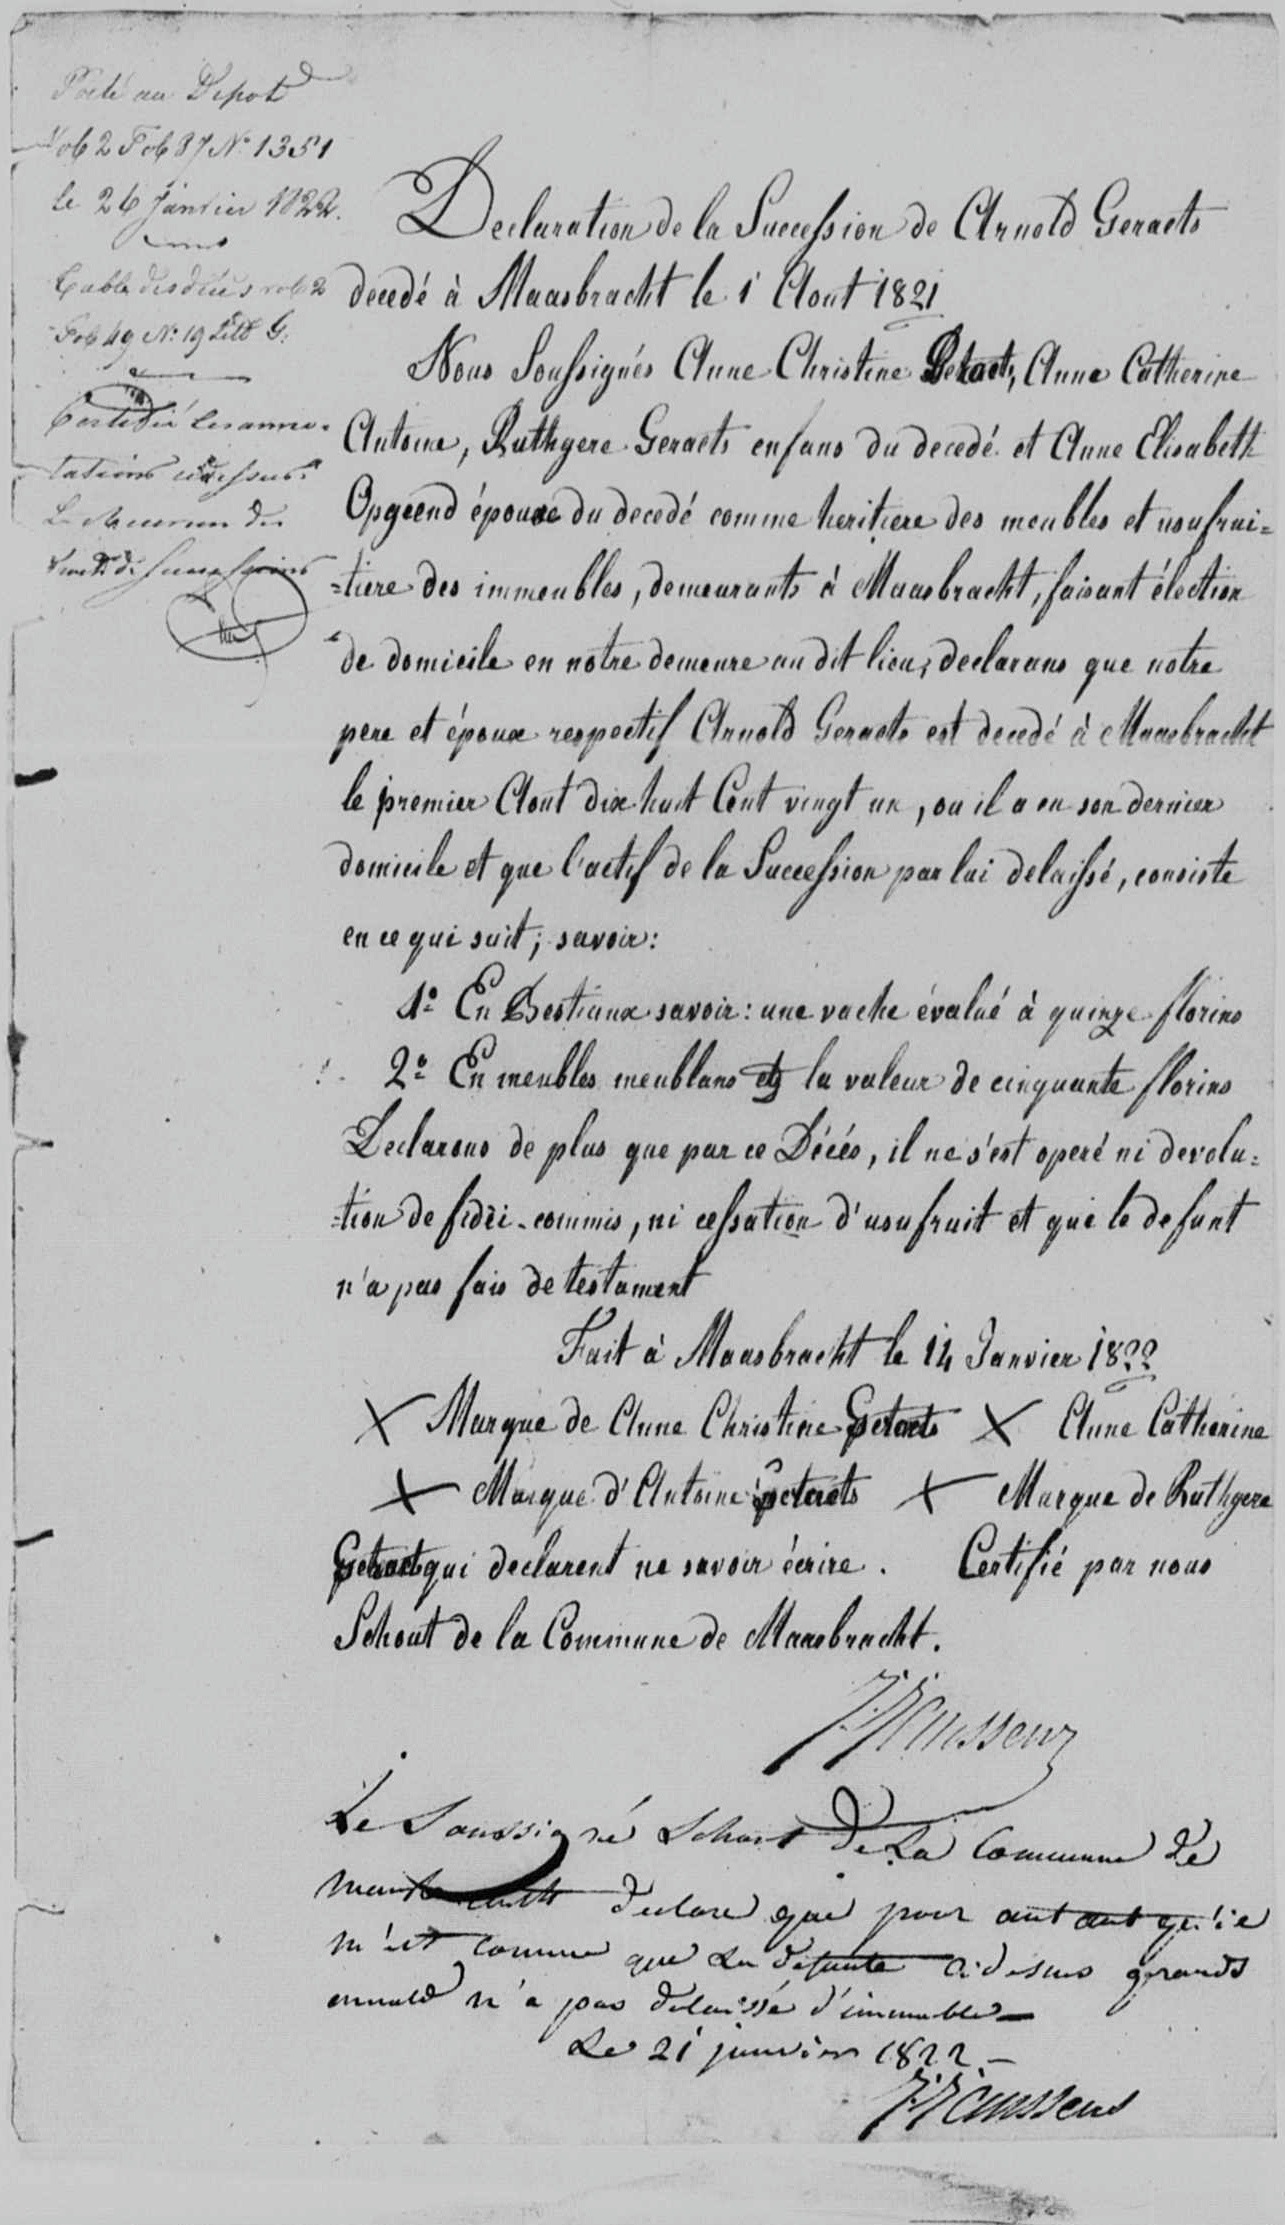 Porté au Depot
Vol 2 Fol 87 N° 1351
le 26 Janvier 1822.
Table des décès vol 2
Fol 49 N° 19 Litt G.
Certifié les anno-
tations cidessus.
Le Receveur des
droits de Successions
Declaration de la Succession de Arnold Geraets
decedé à Maasbracht le 1 Aout 1821
Nous Soussignés Anne Christine Geraets, Anne Catherine
Antoine, Ruthgere Geraets enfans du decedé et Anne Elisabeth
Opgeend épouse du decedé comme heritiere des meubles et usufrui=
=tiere des immeubles, demeurants à Maasbracht, faisant élection
de domicile en notre demeure au dit lieu, declarans que notre
pere et époux respectif Arnold Geraets est decedé à Maasbracht
le premier Aout dix huit Cent vingt un, ou il a eu son dernier
domicile et que l'actif de la Succession par lui delaissé, consiste
en ce qui suit; savoir:
1° En Bestiaux savoir: une vache évalué à quinze florins
2° En meubles meublans la valeur de cinquante florins
Declarons de plus que par ce Décés, il ne s'est operé ni devolu=
=tion de fidëi-commis, ni cessation d'usufruit et que le defunt
n'a pas fais de testament
Fait à Maasbracht le 14 Janvier 1822
X Marque de Anne Christine Geraets X Anne Catherine
X Marque d'Antoine Geraets X Marque de Ruthgere
Geraets qui declarent ne savoir écrire. Certifié par nous
Schout de la Commune de Maasbracht.
Le Soussigné Schout de La Commune de
Maasbracht declare que pour autant qu'il
m'est connue que La defunte cidesus gerards
arnold n'a pas delaissé d'immeubles
Le 21 janvier 1822